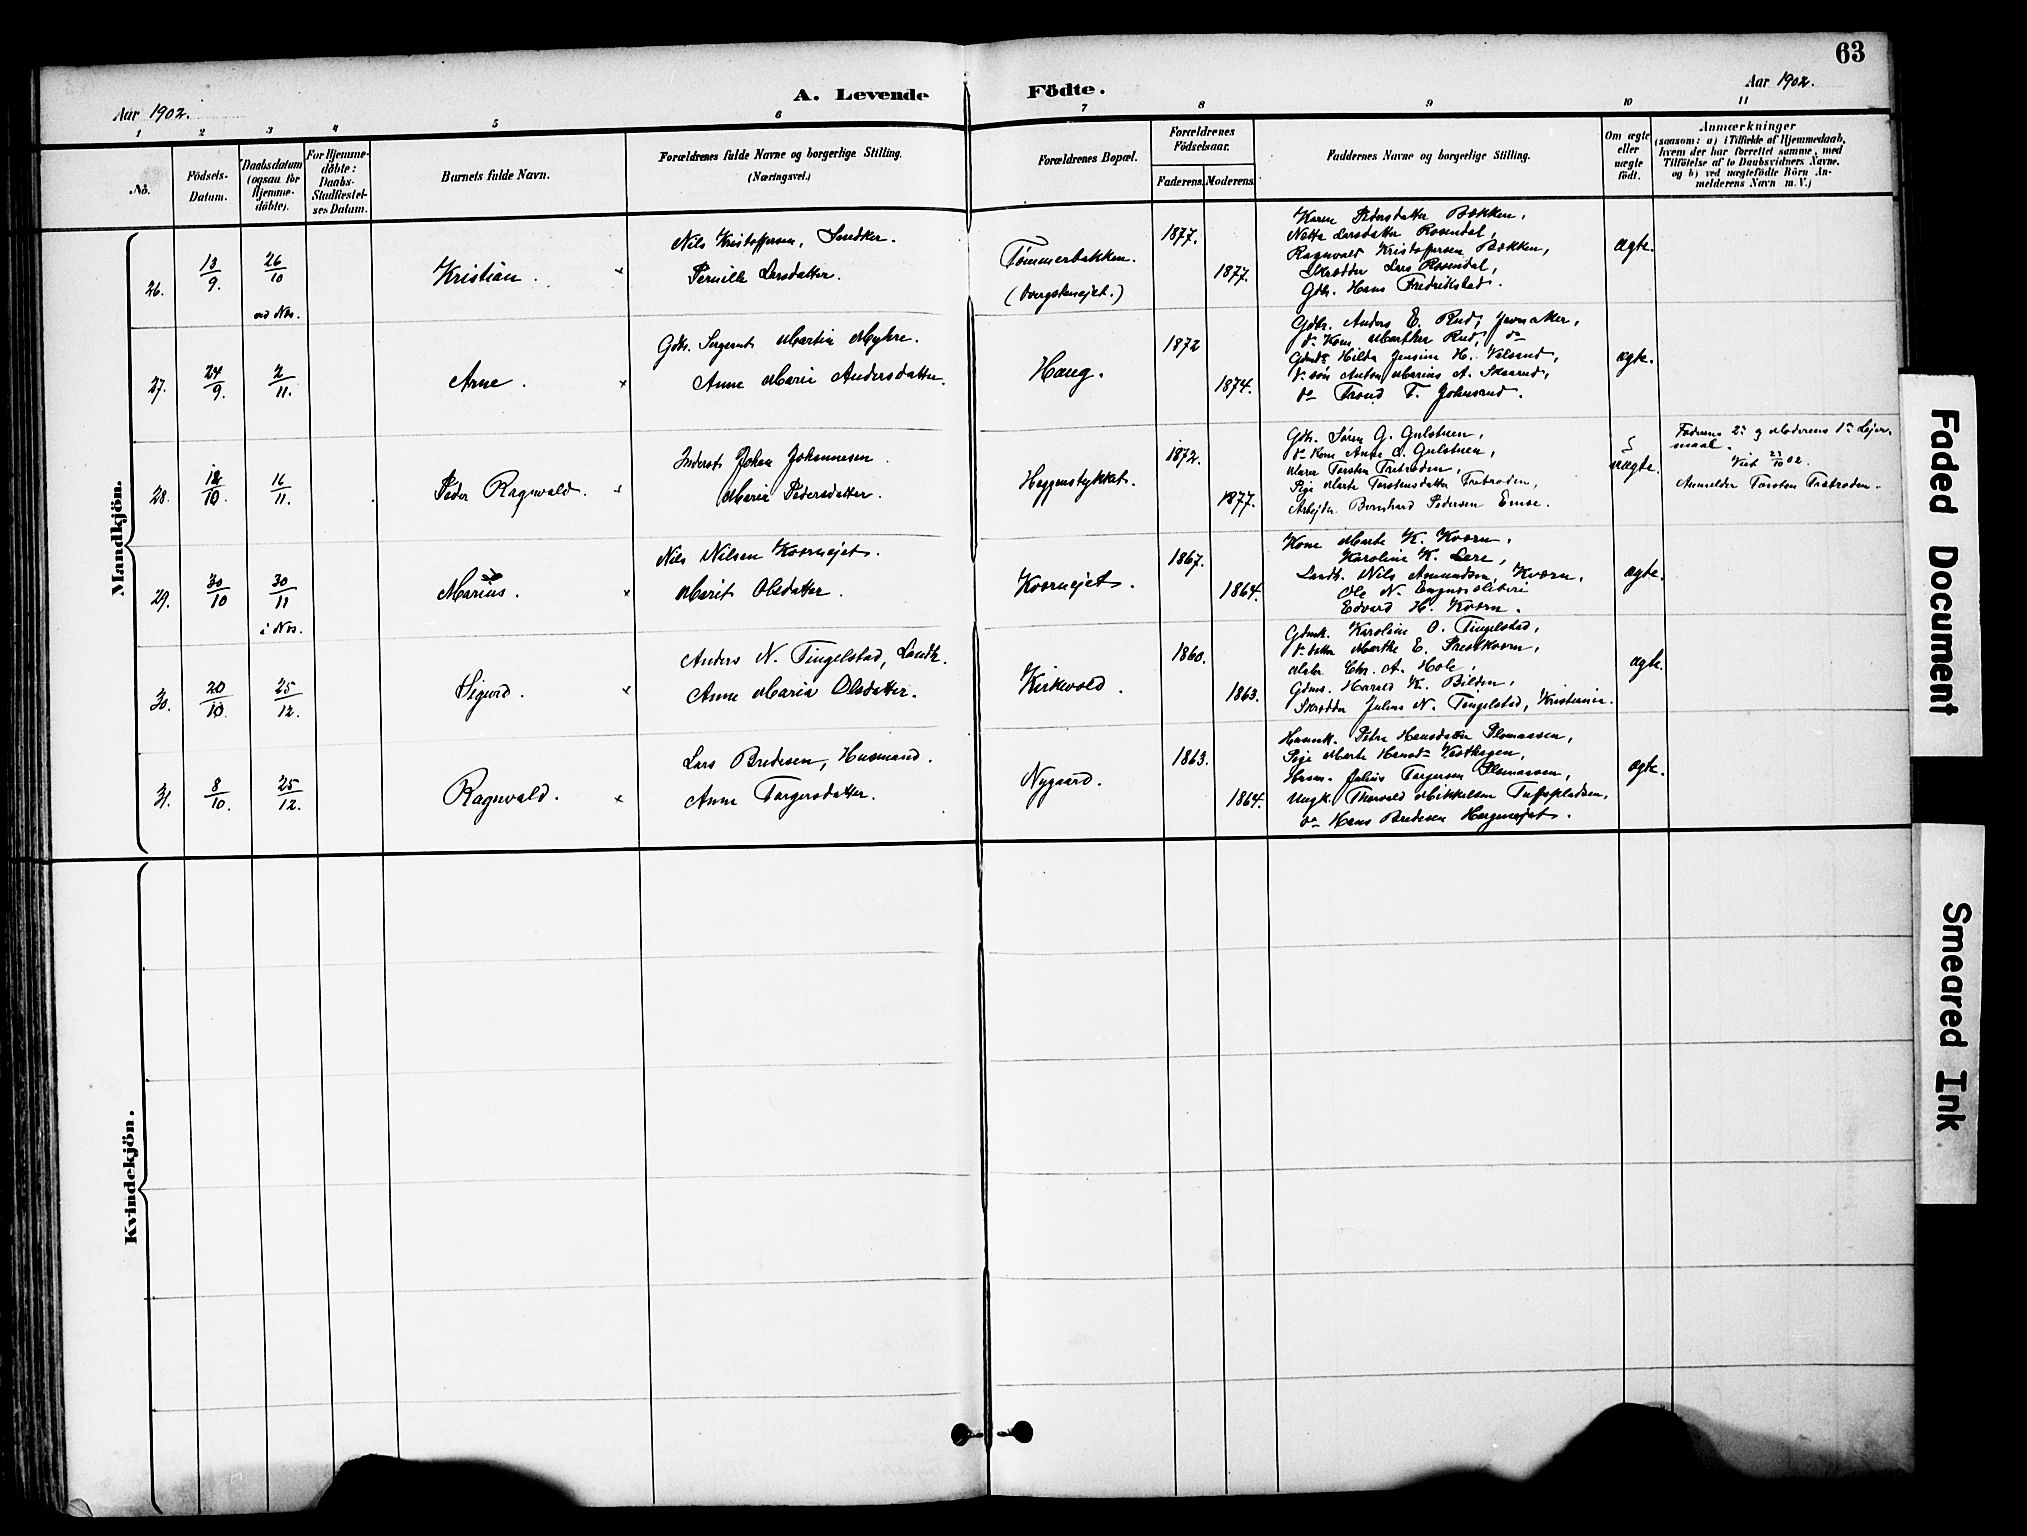 63
Aar 1902.
A. Levende Födte.
Aar 1902.
1 2 3 4 5 6 7 8 9 10 11
No.
Födsels-
Datum.
Daabsdatum
(ogsaa for
Hjemme-
döbte).
For Hjemme-
döbte:
Daabs-
Stadfæstel-
ses Datum.
Barnets fulde Navn.
Forældrenes fulde Navne og borgerlige Stilling.
(Næringsvei.)
Forældrenes Bopæl.
Forældrenes
Födselsaar.
Faderens. Moderens.
Faddernes Navne og borgerlige Stilling.
Om ægte
eller
uægte
födt.
Anmærkninger
(saasom: a) i Tilfælde af Hjemmedaab,
hvem der har forrettet samme, med
Tilföielse af to Daabsvidners Navne,
og b) ved uægtefödte Börn An-
melderens Navn m. V.)
Mandkjön.
26.
13/9.
26/10
Kristian.
Nils Kristoffersen,
Pernille Larsdatter.
Tømmerbakken.
1877.
1877.
Karen Pedersdatter Bækken,
Netta Larsdatter Rosendal,
Ragnvald Kristoffersen Bækken,
Skrædder Lars Rosendal,
Gdbr. Hans Fredrikstad.
ægte.
27.
24/9.
2/11.
Arne.
Gdbr. Sergeant Martin Myhre.
Anne Marie Andersdatter.
Haug.
1872
1874.
Gdbr. Anders E. Rud, Jevnaker,
do Kone Marthe Rud, do
Hilda Jensine H. Velsand,
do søn Anton Marius A. Skaarud,
do Trond T. Johnsrud.
ægte.
28.
12/10.
16/11.
Peder Ragnvald.
Inderst Johan Johannesen
Maria Pedersdatter.
Heggenstykket.
1872.
1877.
Gdbr. Søren G. Gulstuen,
do Kone Anne A. Gulstuen,
Torsten Tretraden,
Pige Marte Torstensdatter Tretraden,
Arbeider Bernhard Pedersen Emse.
uægte.
Faderens 2det og Moderens 1ste Leier-
maal.
Viet 27/10 02.
Anmelder Torsten Tretraden.
29.
30/10
30/11
Marius.
Nils Nilsen Kværnejet.
Marit Olsdatter.
Kværnejet.
1867.
1864.
Kone Marte K. Kværn,
Karoline K. Lere,
Landh. Nils Amundsen Kværn,
Ole N.
Edvard H. Kværn.
ægte.
30.
20/10.
25/12.
Sigurd.
Anders N. Tingelstad, Landh.
Anne Maria Olsdatter.
Kirkevold.
1860.
1863.
Karoline O. Tingelstad,
do datter Marthe E. Prestkværn,
Maler Chr. A. Hole,
Harald K. Bilden,
Skrædder Julius N. Tingelstad, Kristiania.
ægte.
31.
8/10.
25/12.
Ragnvald.
Lars Bredesen, Husmand.
Anne Torgersdatter.
Nygaard.
1863.
1864.
Husmk. Petra Hansdatter Plomaasen,
Pige Marte Hansdr Vesthagen,
Husm. Julius Torgersen Plomaasen,
Ungk. Thorvald Mikkelsen Tuftepladsen,
do Hans Bredesen
ægte.
Kvindekjön.
Faded Document
Smeared Ink